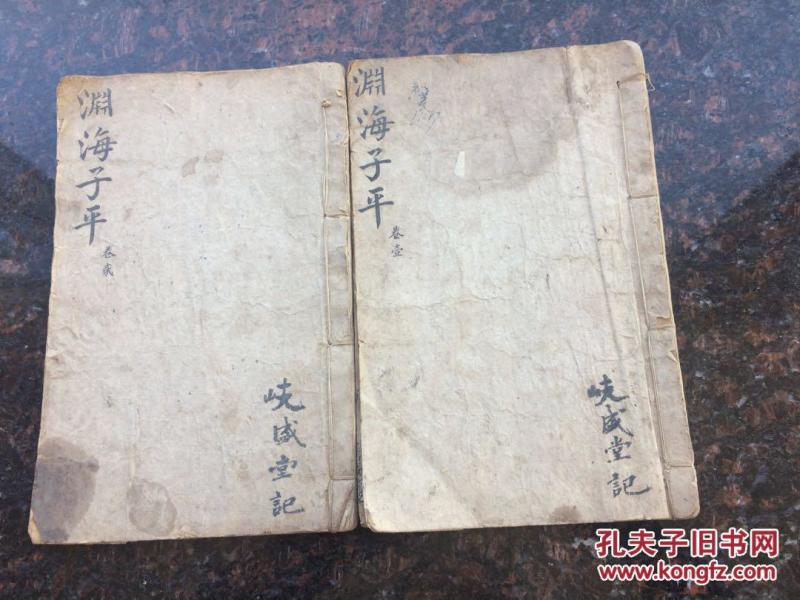 淵海子平
卷壹
堂記
淵海子平
卷貳
堂記
孔夫子旧书网
www.kongfz.com